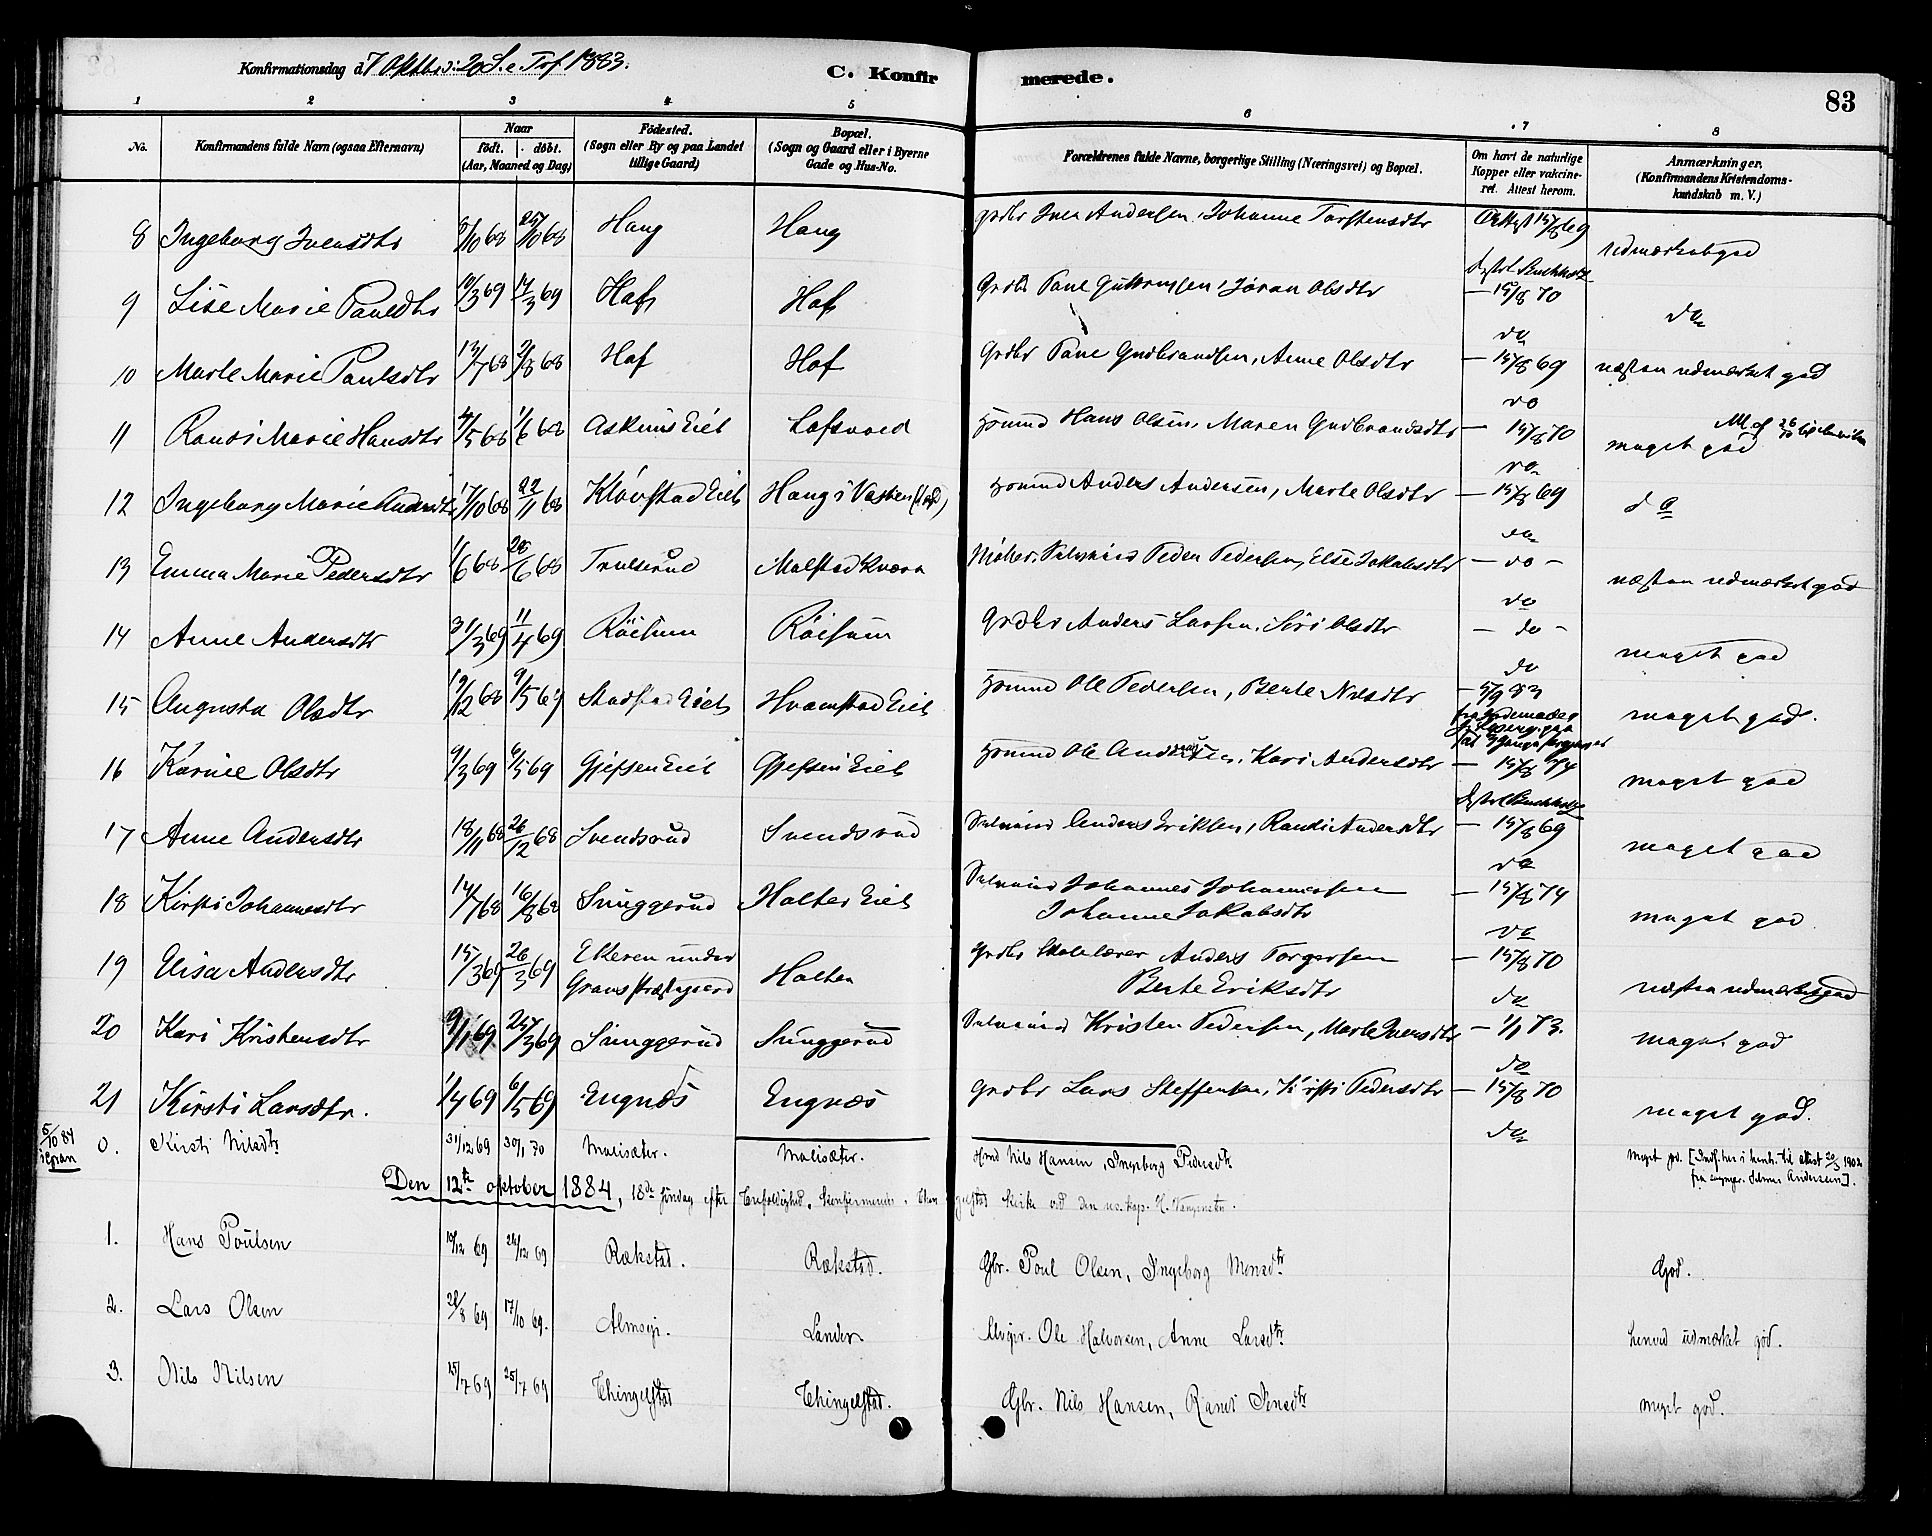 Konfirmationsdag d. 7 Oktbr. 20 S. e. Tref 1883.
C. Konfirmerede.
83
1 2 3 4 5 6 7 8
No. Konfirmandens fulde Navn (ogsaa Efternavn) Naar födt. döbt. (Aar, Maaned og Dag) Födested. (Sogn eller By og paa Landet tillige Gaard) Bopæl. (Sogn og Gaard eller i Byerne Gade og Hus-No. Forældrenes fulde Navne, borgerlige Stilling (Næringsvei) og Bopæl. Om havt de naturlige Kopper eller vakcineret. Attest herom. Anmærkninger. (Konfirmandens Kristendomskundskab m. V.)
8 Ingeborg Iversdtr 9/10 68 25/10 68 Haug Haug grdbr Iver Andersen, Johanne Torstensdtr Attest 15/8 69 udmærket god
9 Lise Marie Paulsdtr 10/3 69 14/3 69 Hof Hof Grdbr Paul Guttormsen, Jøran Olsdtr — 15/8 70 do
10 Marte Marie Paulsdtr 13/7 68 2/8 68 Hof Hof Grdbr Paul Gudbrandsen, Anne Olsdtr do — 15/8 69 næsten udmærket god
11 Randi Marie Hansdtr 4/5 68 1/6 68 Askims Eiet Lofsvold Husmd Hans Olsen, Maren Gudbrandsdtr do — 15/8 70 meget god
12 Ingeborg Marie Andersdtr 17/10 68 22/11 68 Kløvstad Eiet Haug i Vasken Husmd Anders Andersen, Marte Olsdtr do — 15/8 69 do
13 Emma Marie Pedersdtr 1/6 68 28/6 68 Trulsrud Molstad Kværn Møller, Selveier Peder Pedersen, Else Jakobsdtr do — do — næsten udmærket god
14 Anne Andersdtr 31/3 69 11/4 69 Röisum Röisum Grdbr Anders Larsen, Siri Olsdtr do — do — meget god
15 Augusta Olsdtr 19/12 68 9/5 69 Stadstad Eiet Hvamstad Eiet Husmd Ole Pedersen, Berte Nilsdtr do — 5/9 83 meget god.
16 Karine Olsdtr 9/3 69 6/5 69 Gjefsen Eiet Gjefsen Eiet Husmd Ole Andersen, Kari Andersdtr — 15/8 74 meget god
17 Anne Andersdtr 18/11 68 26/12 68 Svendsrud Svendsrud Selveier Anders Eriksen, Randi Andersdtr — 15/8 69 meget god
18 Kirsti Johannesdtr 14/7 68 16/8 68 Sinnggerud Holter Eiet Selveier Johannes Johannessen
Johanne Jakobsdtr do — 15/8 74 meget god
19 Elisa Andersdtr 15/3 69 26/3 69 Ekeren under
Grans Præstegaard Holter Grdbr Skolelærer Anders Torgersen
Berte Eriksdtr do — 15/8 70 næsten udmærket god
20 Kari Kristensdtr 9/1 69 25/3 69 Sinnggerud Sinnggerud Selveier Kristen Pedersen, Marte Iversdtr do — 1/1 73. meget god
21 Kirsti Larsdtr. 1/4 69 6/5 69 Engnæs Engnæs Grdbr Lars Steffensen, Kirsti Pedersdtr do — 15/8 70 meget god.
do
5/10 84 i Gran 0. Kirsti Nilsdtr 31/12 69 30/1 70 Molisæter. Molisæter. Hmd Nils Hansen, Ingeborg Pedersdtr meget god. [Indf. her i henh. til attest 20/3 1902
fra sognepr. Andersen].
Den 12te oktober 1884, 18de söndag efter Trefoldighed, konfirmeredes i Thingelstad Kirke ved den res. kap. H. Vangensten.
1. Hans Poulsen 10/12 69 26/12 69 Rækstad. Rækstad. Gbr. Poul Olsen, Ingeborg Monsdtr God.
2. Lars Olsen 28/8 69 17/10 69. Almseje. Lander. Ole Halvorsen, Anne Larsdtr henved udmærket god.
3. Nils Nilsen 15/7 69 25/7 69 Thingelstad Thingelstad. Gbr. Nils Hansen, Randi Jensdtr meget god.